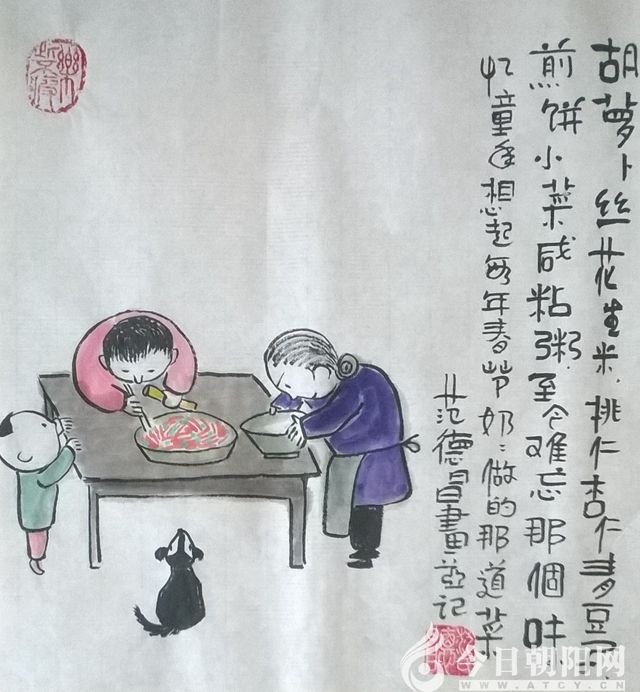 胡萝卜丝花生米.桃仁杏仁豆
煎饼小菜咸粘粥.至今难忘那個味
忆童年想起每年春节奶:做的那道菜
范德昌畫並记
今日朝阳网
WWW.ATCY.CN